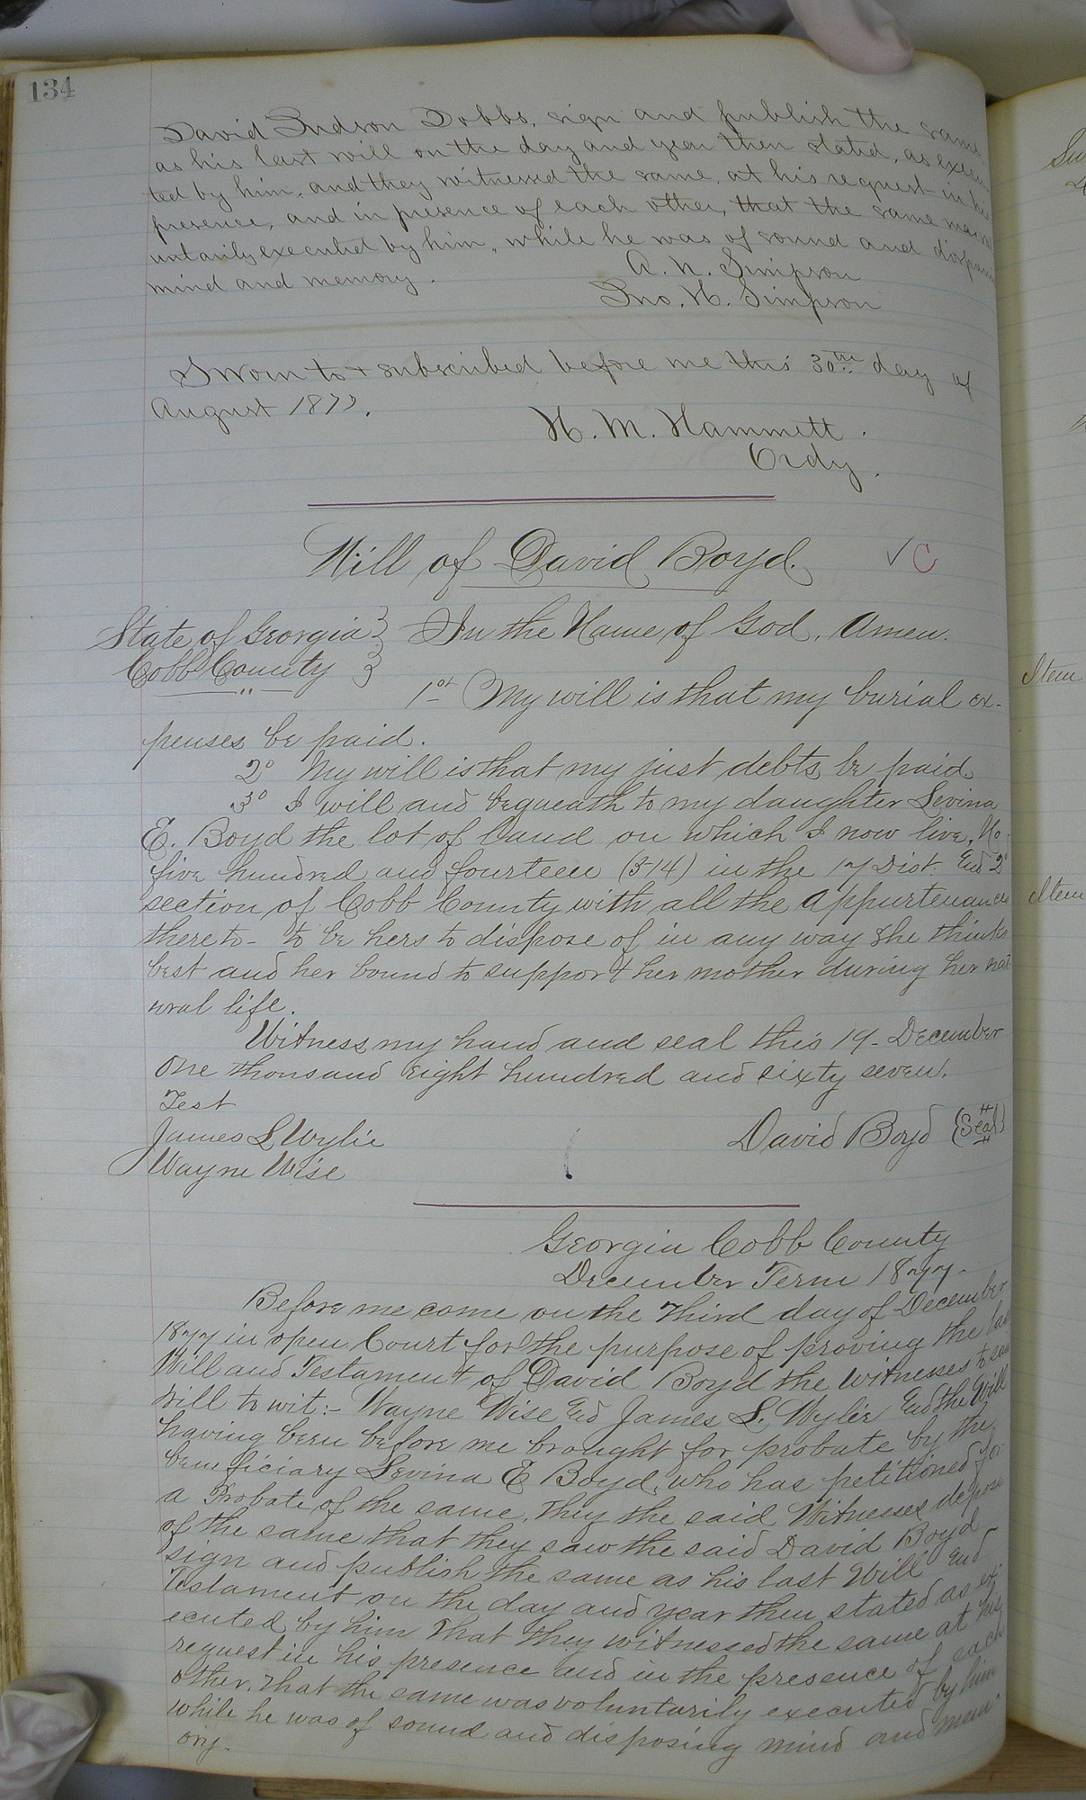 134
David Judson Dobbs, sign and publish the same
as his last will on the day and year then stated, as execu
ted by him, and they witnessed the same, at his request in his
presence, and in presence of each other, that the same was vol
untarily executed by him, while he was of sound and disposing
mind and memory.
A. N. Simpson
Jno. N. Simpson
Sworn to & subscribed before me this 30th day of
August 1877.
H. M. Hammett.
Ordy.
Will of David Boyd. √ C
State of Georgia } In the Name of God, Amen.
Cobb County }
1st My will is that my burial ex-
penses be paid.
2o My will is that my just debts be paid
3o I will and bequeath to my daughter Levina
E. Boyd the lot of land on which I now live, No.
five hundred and fourteen (514) in the 17 Dist. End 2d
section of Cobb County with all the appurtenances
thereto - to be hers to dispose of in any way she thinks
best and her bound to support her mother during her nat
ural life.
Witness my hand and seal this 19 - December
One thousand Eight hundred and sixty seven.
Test
James L Wylie David Boyd (Seal)
Wayne Wise
Georgia Cobb County
December Term 1877 -
Before me come on the Third day of December
1877 in open Court for the purpose of proving the last
Will and Testament of David Boyd the witnesses to said
Will to wit:- Wayne Wise End James L. Wylie End the Will
having been before me brought for probate by the
beneficiary Levina E Boyd, who has petitioned for
a Probate of the same, they the said Witnesses depose
of the same that they saw the said David Boyd
sign and publish the same as his last Will End
Testament on the day and year then stated as ex
ecuted by him That they witnessed the same at his
request in his presence and in the presence of each
other. That the same was voluntarily executed by him
while he was of sound and disposing mind and mem
ory.
Item
Item